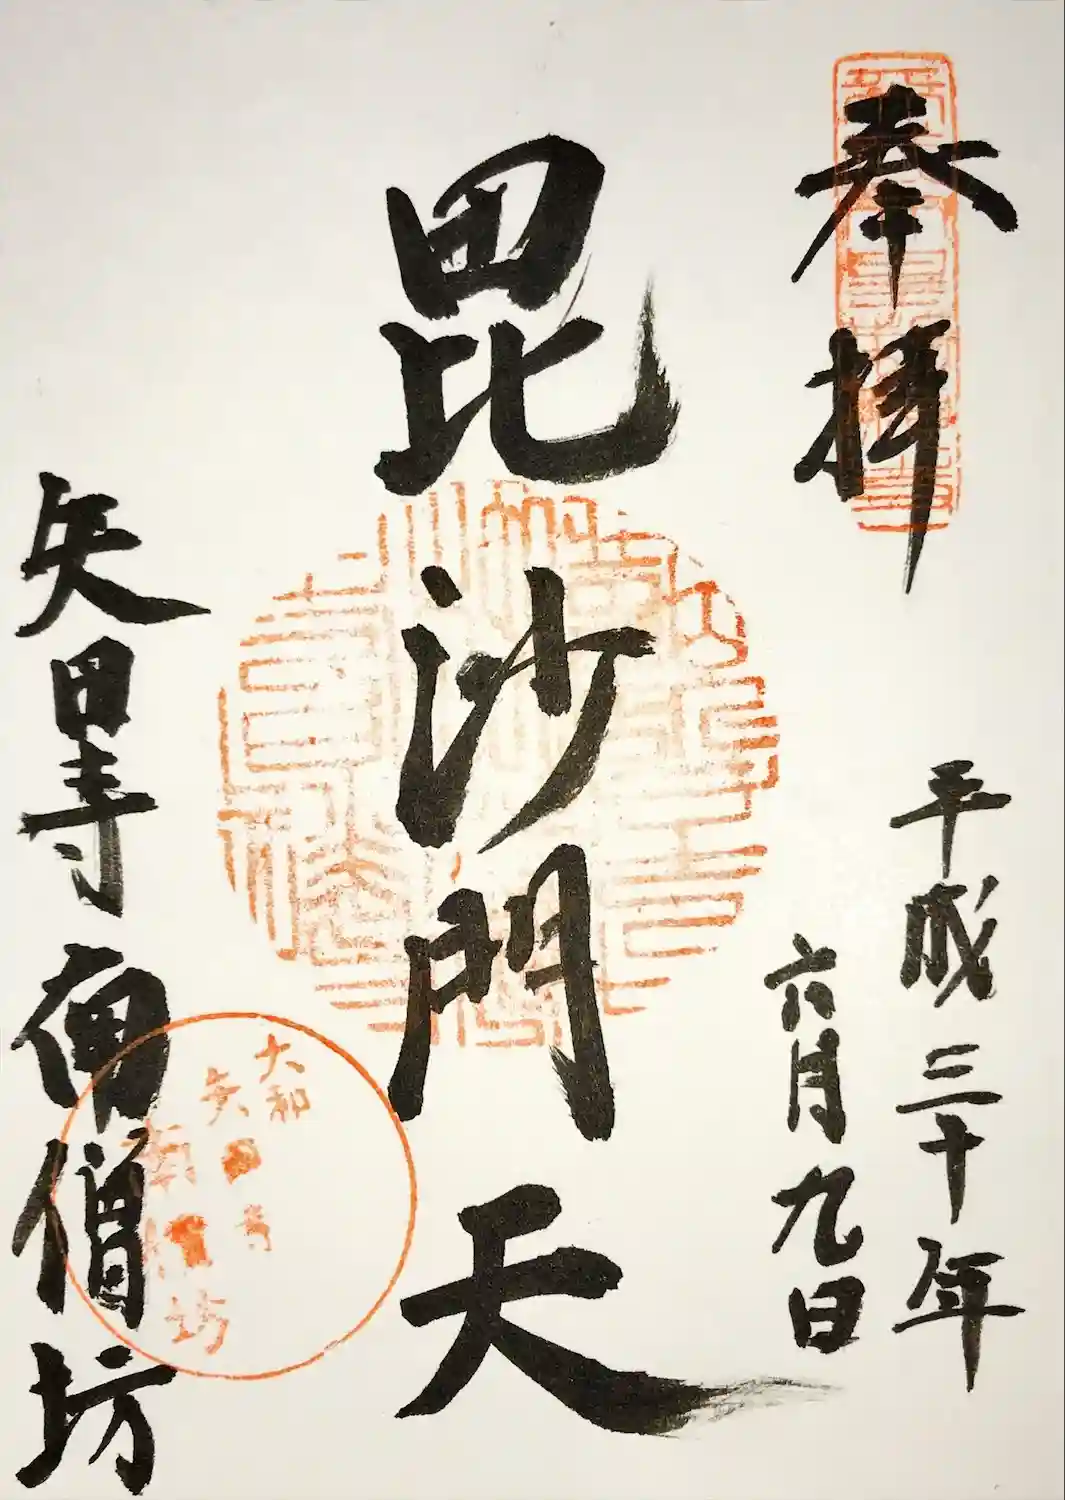 奉拝
平成三十年
六月九日
毘沙門天
矢田寺南僧坊
大和
矢田寺
南僧坊